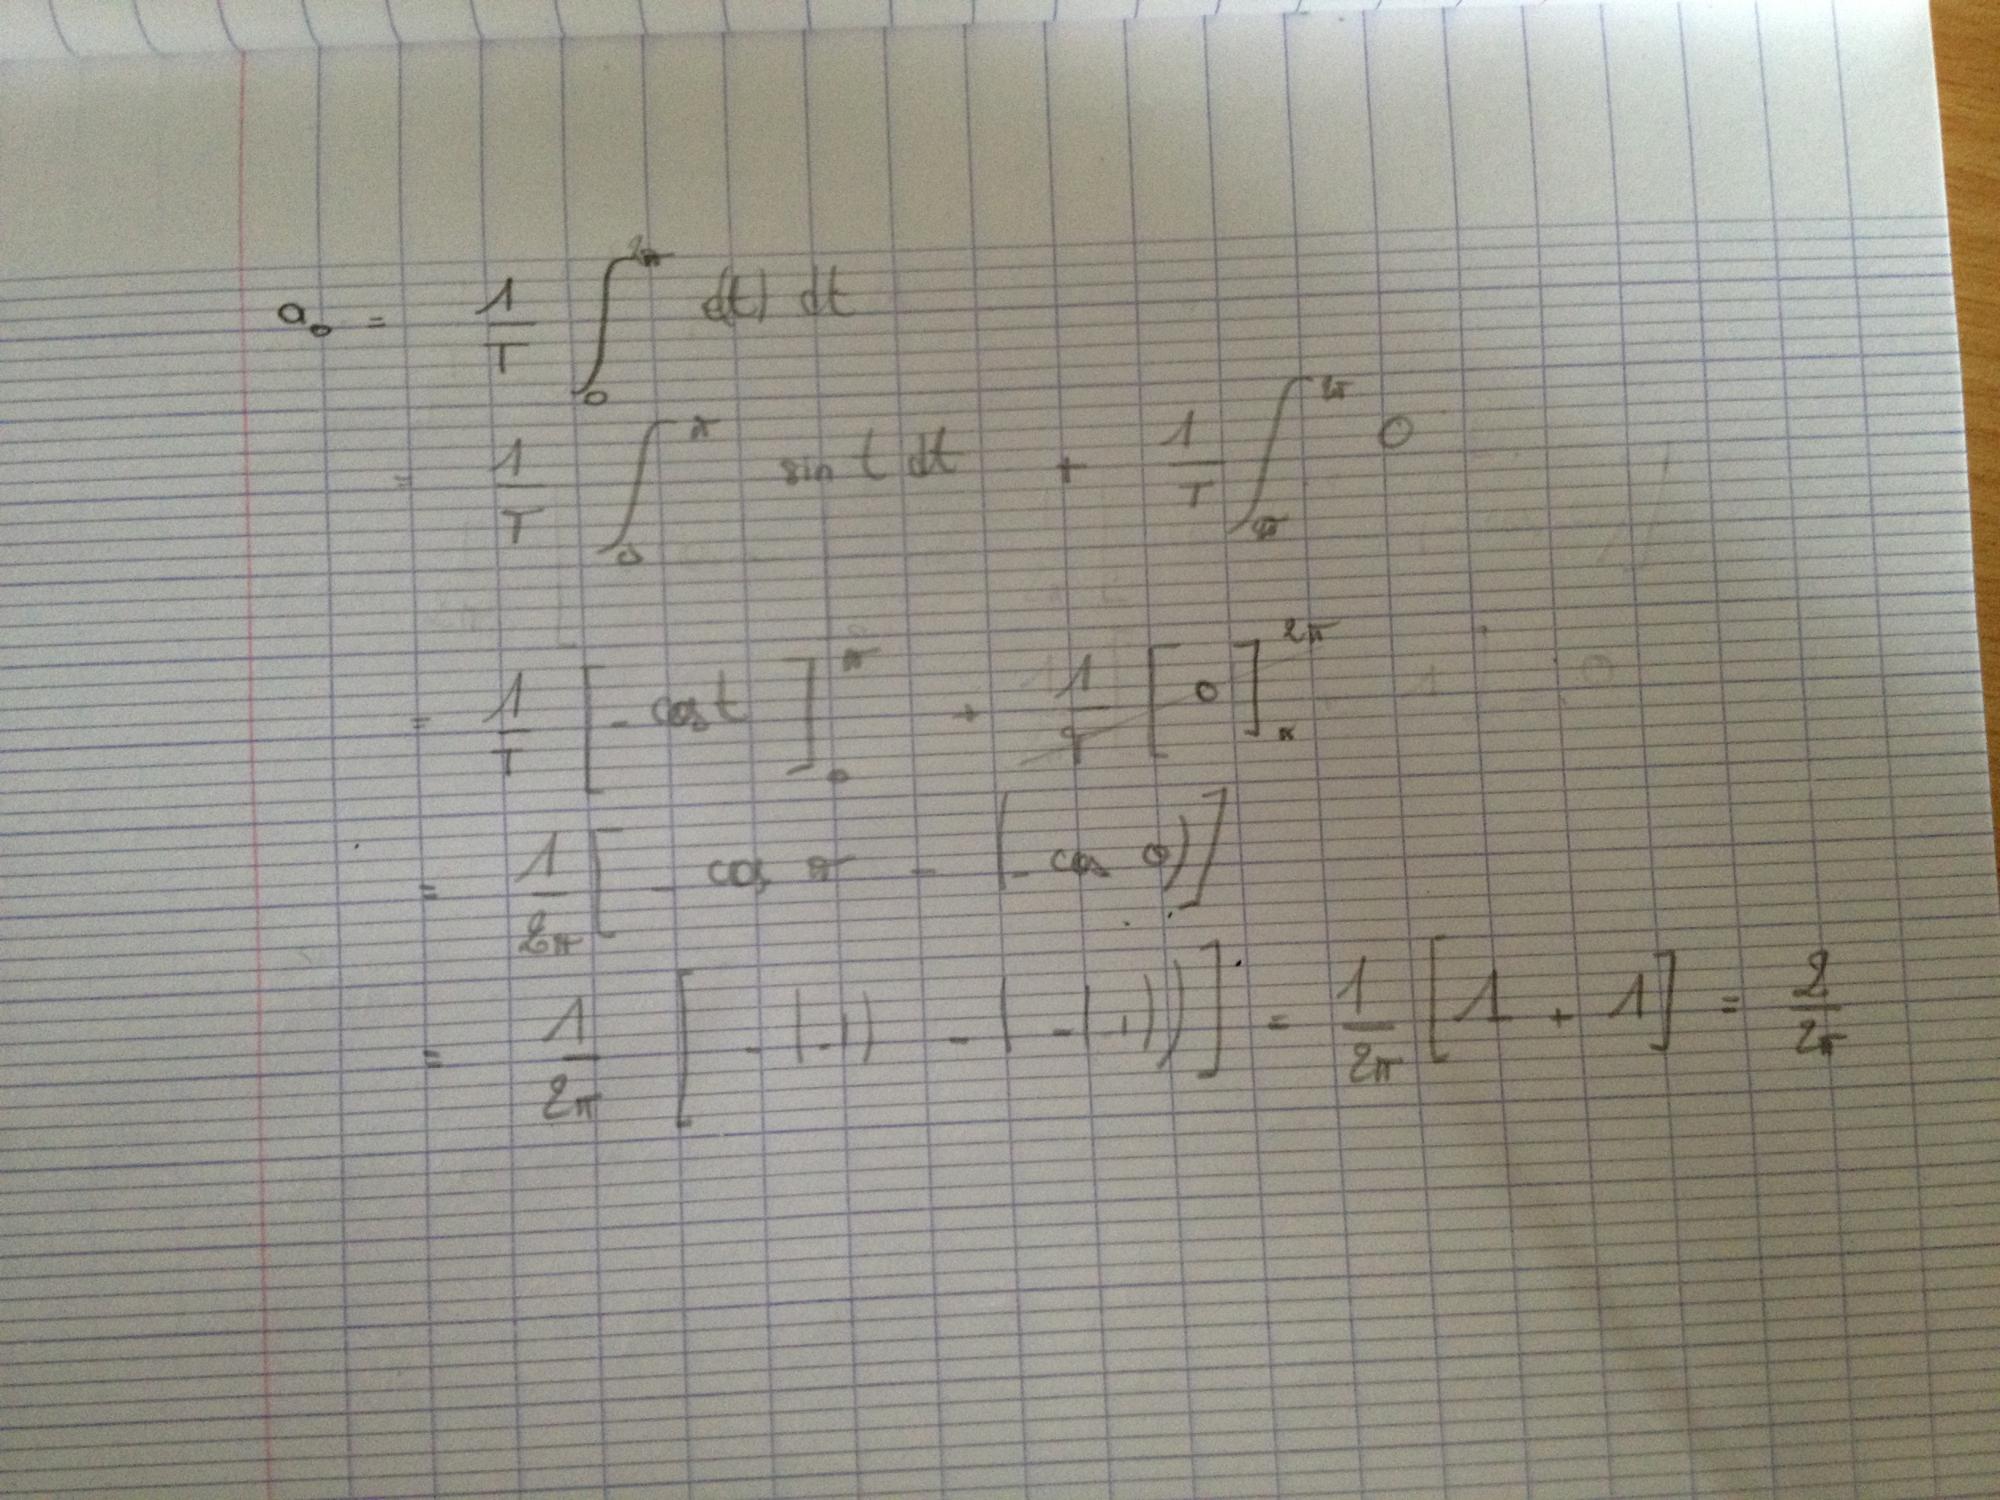 a₀ = 1/T ∫₀^2π d(t) dt
= 1/T ∫₀^π sin t dt + 1/T ∫_π^2π 0
= 1/T [- cos t]₀^π + 1/T [0]_π^2π
= 1/2π [- cos π - (- cos 0)]
= 1/2π [- (-1) - (- (-1))] = 1/2π [1 + 1] = 2/2π